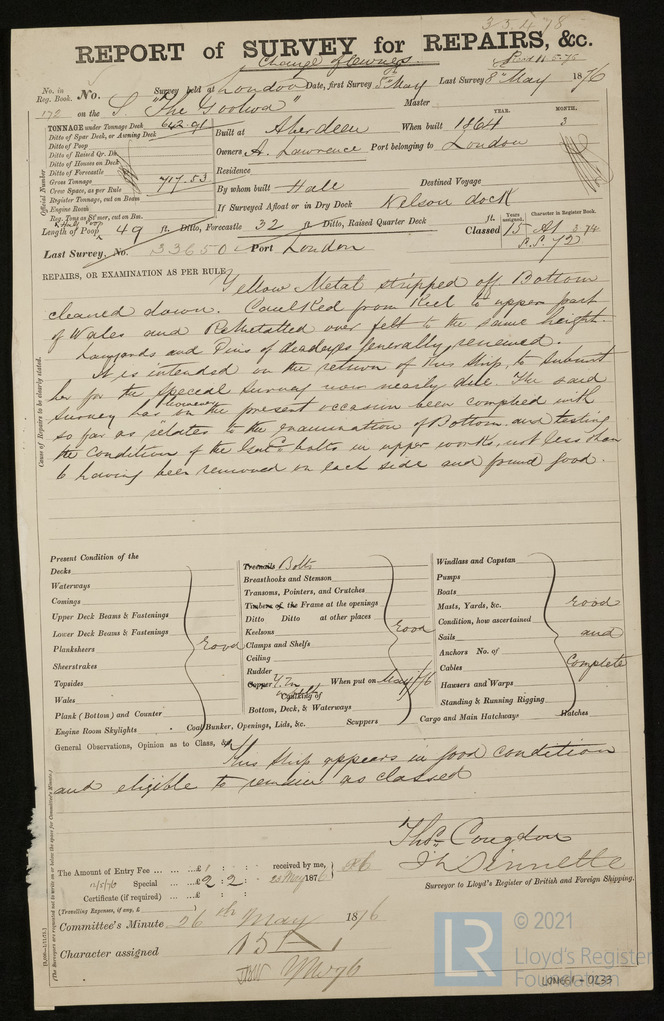 33478
REPORT of SURVEY for REPAIRS, &c.
Change of Owners.
No. in Reg. Book. No. Survey held at London Date, first Survey 5th May Last Survey 8th May 1876
178 on the S "The Goolwa" Master
TONNAGE under Tonnage Deck 642.91
Ditto of Spar Deck, or Awning Deck
Ditto of Poop
Ditto of Raised Qr. Dk
Ditto of Houses on Deck
Ditto of Forecastle
Gross Tonnage 717.53
Cross Space, as per Rule
Register Tonnage, cut on Beam
Engine Room
Reg. Tons as St'mer, cut on Bm.
Official Number
Built at Aberdeen When built YEAR. 1864 MONTH. 3
Owners A. Lawrence Port belonging to London
Residence
By whom built Hall Destined Voyage
If Surveyed Afloat or in Dry Dock Nelson dock
Length of Poop 49 ft. Ditto, Forecastle 32 ft. Ditto, Raised Quarter Deck ft.
Classed Years assigned. 15 Character in Register Book. A1 3.74
S.S. 72
Last Survey, No. 33650 Port London
REPAIRS, OR EXAMINATION AS PER RULE,
Yellow Metal stripped off Bottom
cleaned down. Caulked from Keel to upper part
of Wales and Remetalled over felt to the same height.
Lanyards and Pins of deadeyes generally renewed.
It is intended on the return of this Ship, to submit
her for the Special Survey now nearly due. The said
Survey has however on the present occasion been complied with
so far as relates to the examination of Bottom and testing
the condition of the bolts in upper works, not less than
6 having been removed on each side and found good.
Cause of Repairs to be clearly stated.
Present Condition of the
Decks
Waterways
Comings
Upper Deck Beams & Fastenings
Lower Deck Beams & Fastenings
Planksheers
Sheerstrakes
Topsides
Wales
Plank (Bottom) and Counter
Engine Room Skylights
Good
Treenails Bolts
Breasthooks and Stemson
Transoms, Pointers, and Crutches
Timbers of the Frame at the openings
Ditto Ditto at other places
Keelsons
Clamps and Shelfs
Ceiling
Rudder
Copper Y.M. When put on May /76
Caulking of
Bottom, Deck, & Waterways
Coal Bunker, Openings, Lids, &c. Scuppers
Good
Windlass and Capstan
Pumps
Boats
Masts, Yards, &c.
Condition, how ascertained
Sails
Anchors No. of
Cables
Hawsers and Warps
Standing & Running Rigging
Cargo and Main Hatchways Hatches
Good
and
Complete
General Observations, Opinion as to Class, &c.
This Ship appears in good condition
and eligible to remain as classed
Thos. Congdon
Surveyor to Lloyd's Register of British and Foreign Shipping.
The Amount of Entry Fee ... ... £1 : : received by me,
12/5/76 Special ... £2 : 2 : May 1876
Certificate (if required) ... £ : :
(Travelling Expenses, if any, £ )
Committee's Minute 26th May 1876
Character assigned 15 A 1
(The Surveyors are requested not to write on or below the space for Committee's Minute.)
© 2021
LR
Lloyd's Register
Foundation
LON651-0233